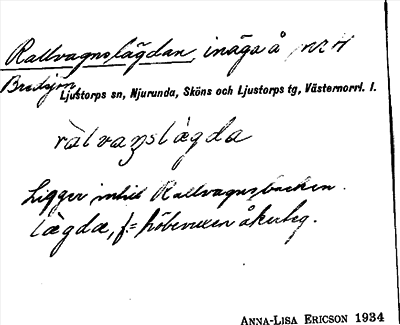 Rallvagnslägdan, inäga å nr 4
Bredsjön,
Ljustorps sn, Njurunda, Sköns och Ljustorps tg, Västernorrl. l.
ràlvanslàgda
Ligger intill Rallvagnsbacken.
lägda, f = höbevuxen åkerteg.
ANNA-LISA ERICSON 1934